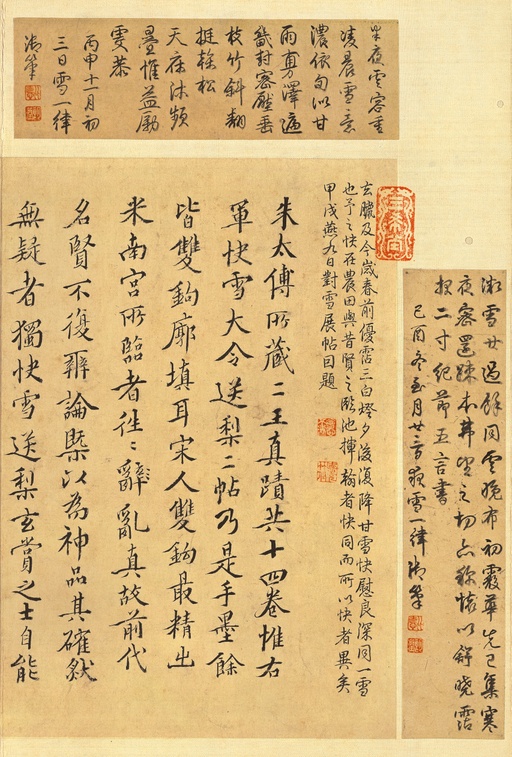 半夜雲容重
凌晨雪意
濃依旬似甘
雨旉澤遍
畿封密壓垂
枝竹斜翻
挺榦松
天庥沐頻
疊惟益勵
虔恭
丙申十一月初
三日雪一律
御筆
雪廿過餘同雲晚布初霰華先已集寒
夜密還疎本茀望之切亦稱懷以舒曉霑
報二寸紀節五言書
己酉冬至月廿夜雪一律御筆
三希堂
玄臘及今歲春前優霑三白燈夕後復降甘雪快慰良深同一雪
也予之快在農田與昔賢之臨池揮翰者快同而所以快者異矣
甲戌燕九日對雪展帖因題
朱太傅所藏二王真蹟共十四卷惟右
軍快雪大令送梨二帖乃是手墨餘
皆雙鉤廓填耳宋人雙鉤最精出
米南宮所臨者往〻辭亂真故前代
名賢不復辨論槩以為神品其確然
無疑者獨快雪送梨玄賞之士自能